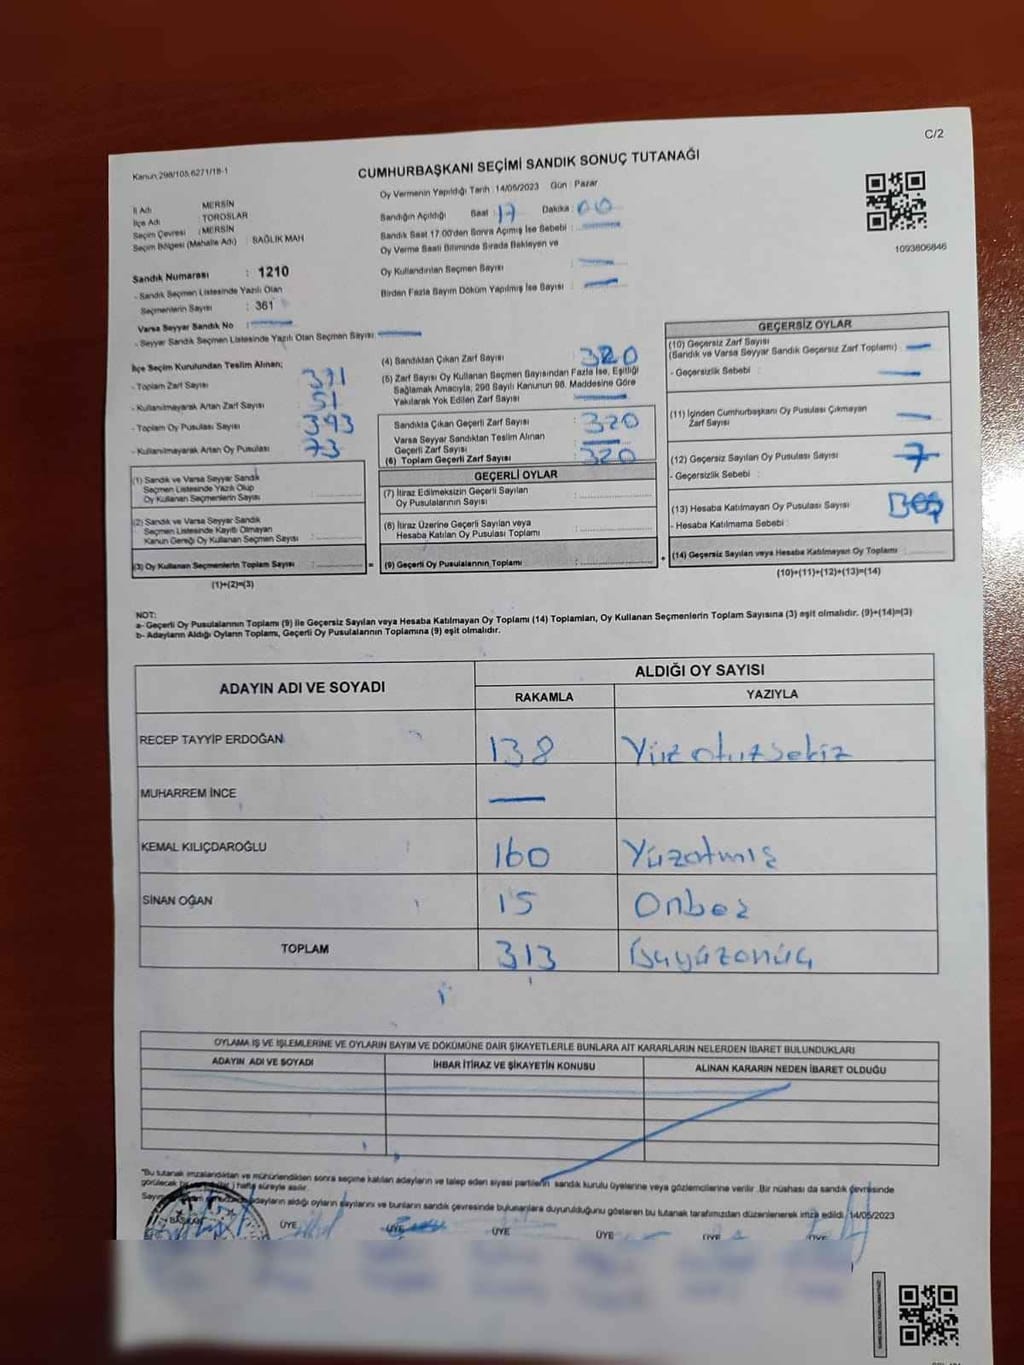 C/2
Kanun;298/105;6271/18-1
CUMHURBAŞKANI SEÇİMİ SANDIK SONUÇ TUTANAĞI
İl Adı : MERSİN
İlçe Adı : TOROSLAR
Seçim Çevresi : MERSİN
Seçim Bölgesi (Mahalle Adı) : SAĞLIK MAH
Oy Vermenin Yapıldığı Tarih : 14/05/2023 Gün : Pazar
Sandığın Açıldığı Saat : 17 Dakika : 00
Sandık Saat 17.00'den Sonra Açılmış İse Sebebi :
Oy Verme Saati Bitiminde Sırada Bekleyen ve
Oy Kullandırılan Seçmen Sayısı :
Birden Fazla Sayım Döküm Yapılmış İse Sayısı :
1093806846
Sandık Numarası : 1210
- Sandık Seçmen Listesinde Yazılı Olan
Seçmenlerin Sayısı : 361
Varsa Seyyar Sandık No :
- Seyyar Sandık Seçmen Listesinde Yazılı Olan Seçmen Sayısı:
İlçe Seçim Kurulundan Teslim Alınan;
- Toplam Zarf Sayısı : 371
- Kullanılmayarak Artan Zarf Sayısı : 51
- Toplam Oy Pusulası Sayısı : 393
- Kullanılmayarak Artan Oy Pusulası : 73
(1) Sandık ve Varsa Seyyar Sandık
Seçmen Listesinde Yazılı Olup
Oy Kullanan Seçmenlerin Sayısı :
(2) Sandık ve Varsa Seyyar Sandık
Seçmen Listesinde Kayıtlı Olmayan
Kanun Gereği Oy Kullanan Seçmen Sayısı :
(3) Oy Kullanan Seçmenlerin Toplam Sayısı :
(1)+(2)=(3)
(4) Sandıktan Çıkan Zarf Sayısı : 320
(5) Zarf Sayısı Oy Kullanan Seçmen Sayısından Fazla İse, Eşitliği
Sağlamak Amacıyla, 298 Sayılı Kanunun 98. Maddesine Göre
Yakılarak Yok Edilen Zarf Sayısı :
Sandıkta Çıkan Geçerli Zarf Sayısı : 320
Varsa Seyyar Sandıktan Teslim Alınan
Geçerli Zarf Sayısı :
(6) Toplam Geçerli Zarf Sayısı : 320
GEÇERLİ OYLAR
(7) İtiraz Edilmeksizin Geçerli Sayılan
Oy Pusulalarının Sayısı :
(8) İtiraz Üzerine Geçerli Sayılan veya
Hesaba Katılan Oy Pusulası Toplamı :
= (9) Geçerli Oy Pusulalarının Toplamı :
GEÇERSİZ OYLAR
(10) Geçersiz Zarf Sayısı
(Sandık ve Varsa Seyyar Sandık Geçersiz Zarf Toplamı) :
- Geçersizlik Sebebi :
(11) İçinden Cumhurbaşkanı Oy Pusulası Çıkmayan
Zarf Sayısı :
(12) Geçersiz Sayılan Oy Pusulası Sayısı : 7
- Geçersizlik Sebebi :
(13) Hesaba Katılmayan Oy Pusulası Sayısı :
- Hesaba Katılmama Sebebi :
+ (14) Geçersiz Sayılan veya Hesaba Katılmayan Oy Toplamı :
(10)+(11)+(12)+(13)=(14)
NOT:
a- Geçerli Oy Pusulalarının Toplamı (9) ile Geçersiz Sayılan veya Hesaba Katılmayan Oy Toplamı (14) Toplamları, Oy Kullanan Seçmenlerin Toplam Sayısına (3) eşit olmalıdır. (9)+(14)=(3)
b- Adayların Aldığı Oyların Toplamı, Geçerli Oy Pusulalarının Toplamına (9) eşit olmalıdır.
ADAYIN ADI VE SOYADI ALDIĞI OY SAYISI
RAKAMLA YAZIYLA
RECEP TAYYİP ERDOĞAN 138 Yüzotuzsekiz
MUHARREM İNCE —
KEMAL KILIÇDAROĞLU 160 Yüzatmış
SİNAN OĞAN 15 Onbeş
TOPLAM 313 Üçyüzonüç
OYLAMA İŞ VE İŞLEMLERİNE VE OYLARIN SAYIM VE DÖKÜMÜNE DAİR ŞİKAYETLERLE BUNLARA AİT KARARLARIN NELERDEN İBARET BULUNDUKLARI
ADAYIN ADI VE SOYADI İHBAR İTİRAZ VE ŞİKAYETİN KONUSU ALINAN KARARIN NEDEN İBARET OLDUĞU
"Bu tutanak imzalandıktan ve mühürlendikten sonra seçime katılan adayların ve talep eden siyasi partilerin sandık kurulu üyelerine veya gözlemcilerine verilir. Bir nüshası da sandık çevresinde
görülecek bir hafta süreyle asılır.
adayların aldığı oyların sayılarını ve bunların sandık çevresinde bulunanlara duyurulduğunu gösteren bu tutanak tarafımızdan düzenlenerek imza edildi. 14/05/2023
BAŞKAN ÜYE ÜYE ÜYE ÜYE ÜYE ÜYE